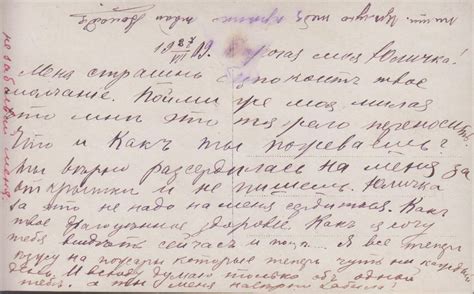 1909. Дорогая моя Юличка!
Меня страшно безпокоитъ твое
молчание. Пойми же моя милая
что мнѣ это тяжело переносить.
Что и Какъ ты поживаешь?
Ты вѣрно разсердилась на меня за
открытки и не пишешь. Юличка
за это не надо на меня сердиться. Какъ
твое драгоценное здоровье. Какъ я хочу
тебя видѣть сейчасъ и Я все теперь
на пожары которые теперь чуть ни каждый
день. И всюду думаю только объ одной
тебѣ. а ты меня навѣрно забыла!
не забывай меня